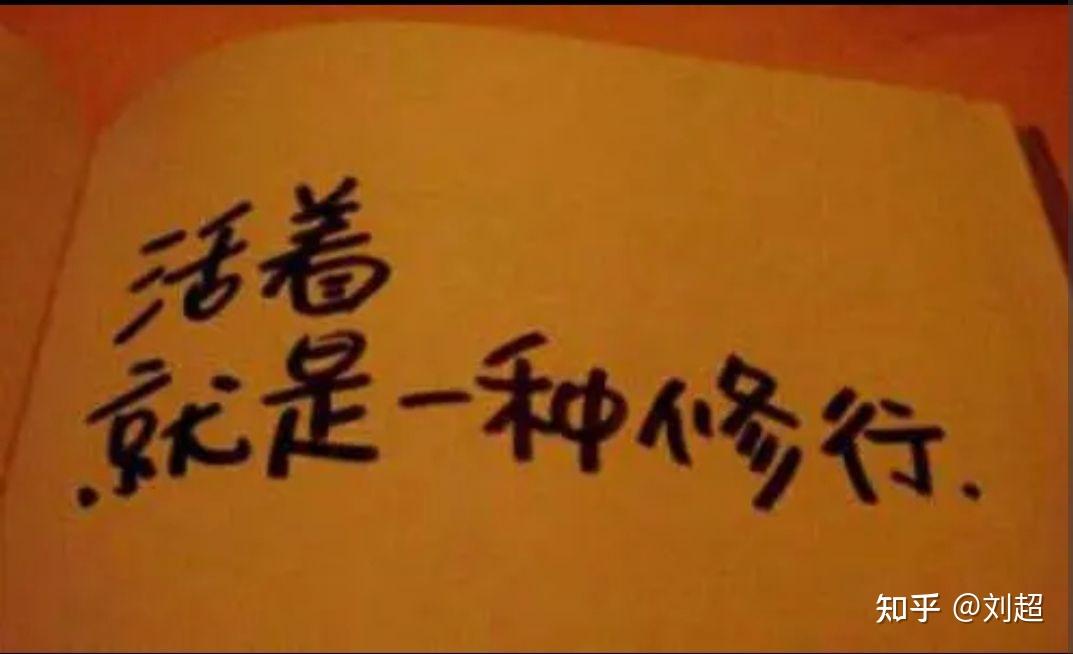 活着
就是一种修行.
知乎 @刘超